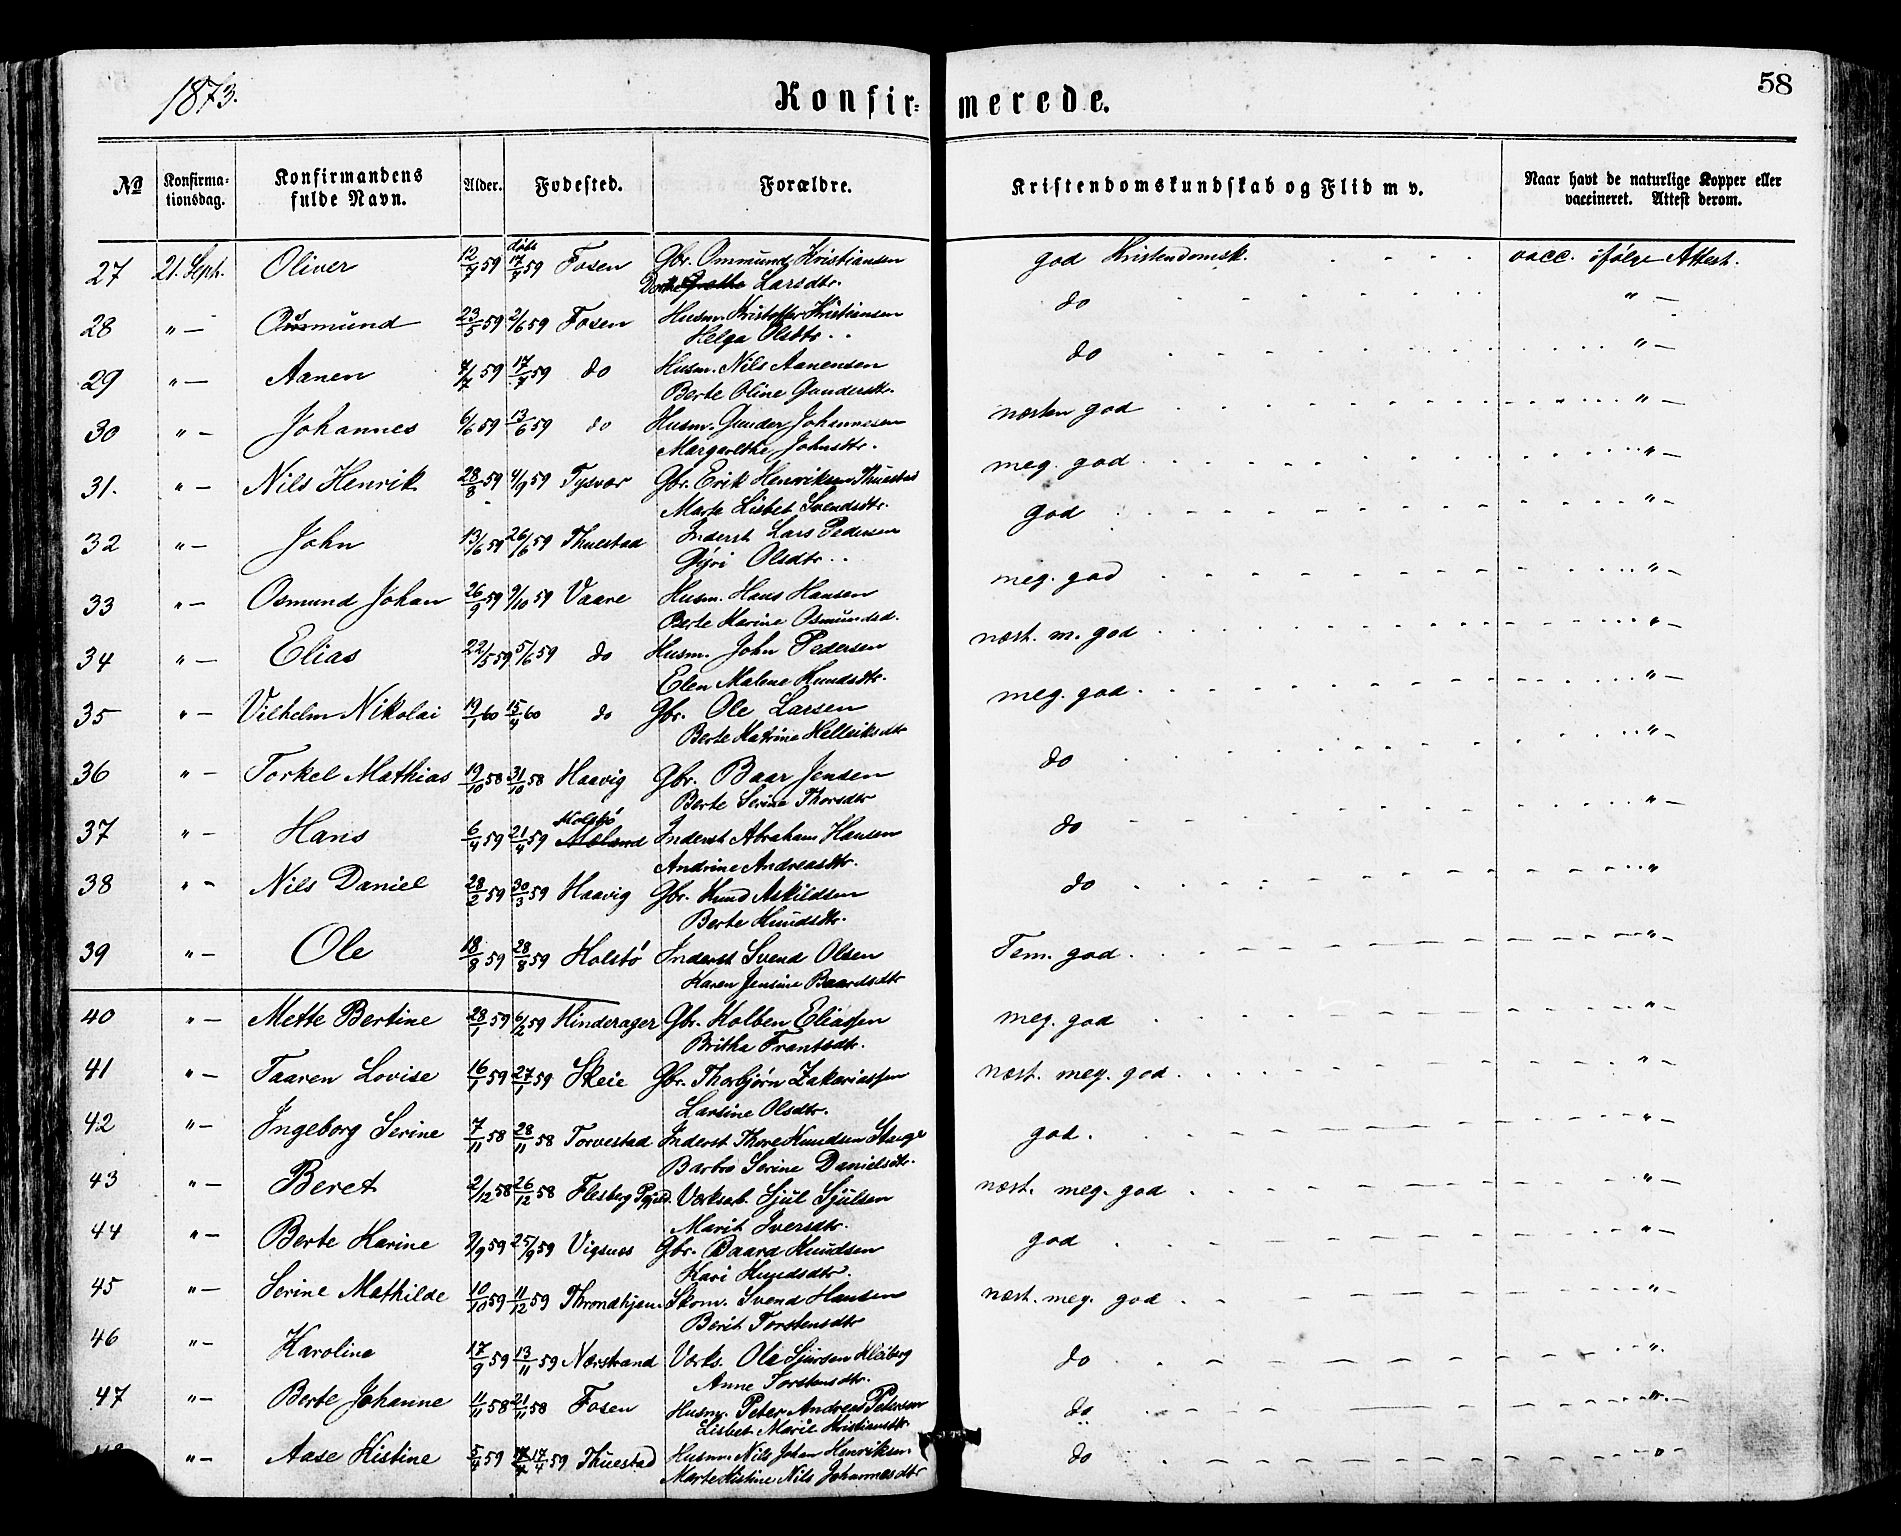 1873.
Konfir- merede.
58
No Konfirma-tionsdag. Konfirmandens fulde Navn. Alder. Fodested. Forældre. Kristendomskundskab og Flid m v. Naar havt de naturlige Kopper eller vaccineret. Attest derom.
27 21. Sept. Oliver 12/7 59 døbt 17/7 59 Fosen Gbr. Ommund Kristiansen god Kristendomsk. vacc. ifølge Attest.
Larsdtr.
28 " — 23/5 59 2/6 59 Fosen Husm. Kristoffer Kristiansen do " —
Helga Olsdtr.
29 " — Aanen 7/7 59 17/7 59 do Husm. Nils Aanensen do " —
Berte Oline Gundersdtr.
30 " — Johannes 6/6 59 13/6 59 do Husm. Gunder Johannesen næsten god " —
Margarethe Johnsdtr.
31. " — Nils Henrik 28/8 59 4/9 59 Tysvær Gbr. Erik Henriksen Thuestad meg. god " —
Marta Lisbet Svendsdtr.
32 " — John 13/6 59 26/6 59 Thuestad Inderst Lars Pedersen god " —
Gyri Olsdtr.
33 " — Osmund Johan 26/9 59 9/10 59 Vaare Husm. Hans Hansen meg. god " —
Berte Karine Osmundsd.
34 " — Elias 22/5 59 5/6 59 do Husm. John Pedersen næst. m. god " —
Elen Malene Knudsdtr.
35 " — Vilhelm Nikolai 19/1 60 15/4 60 do Gbr. Ole Larsen meg. god " —
Berte Katrine Helliksdtr
36 " — Torkel Mathias 19/10 58 31/10 58 Haavig Gbr. Baar Jensen do " —
Berte Serine Thorsdtr
37 " — Hans 6/4 59 21/4 59 Holstø Inderst Abraham Hansen do " —
Andrine Andreasdtr.
38 " — Nils Daniel 28/2 59 30/3 59 Haavig Gbr. Knud Askildsen do "
Berte Knudsdtr.
39 " — Ole 18/8 59 28/8 59 Holstø Inderst Svend Olsen Tem. god " —
Karen Jensine Baardsdtr
40 " — Mette Bertine 28/1 59 6/2 59 Hinderager Gbr. Kolben Eliassen meg. god " —
Britha Frantsdtr.
41 " — Taaren Lovise 16/1 59 27/1 59 Skeie Gbr. Thorbjørn Zakariassen næst. meg. god " —
Larsine Olsdtr.
42 " — Ingeborg Serine 7/11 58 28/11 58 Torvestad Inderst Thore Knudsen god. " —
Barbro Serine Danielsdtr.
43 " — Beret 2/12 58 26/12 58 Flesberg Værksab. Sjul Sjulsen næst. meg. god " —
Marit Iversdtr.
44 " — Berte Karine 9/9 59 25/9 59 Vigsnæs Gbr. Baard Knudsen god " —
Kari Knudsdtr.
45 " — Serine Mathilde 10/10 59 11/12 59 Throndhjem Skom. Svend Hansen næst. meg. god " —
Berit Torstensdtr
46 " — Karoline 17/9 59 13/11 59 Nærstrand Værks. Ole Sjursen Kleiberg do "
Anne Torstensdtr.
47 " — Berte Johanne 11/11 58 21/11 58 Fosen Husm. Peter Andreas Petersen do " —
Lisbet Marie Kristiansdtr.
" — Aase Kistine 5/4 59 17/4 59 Thuestad Husm. Nils Johan Henriksen do "
Marte Kistine Nils Johannesdtr